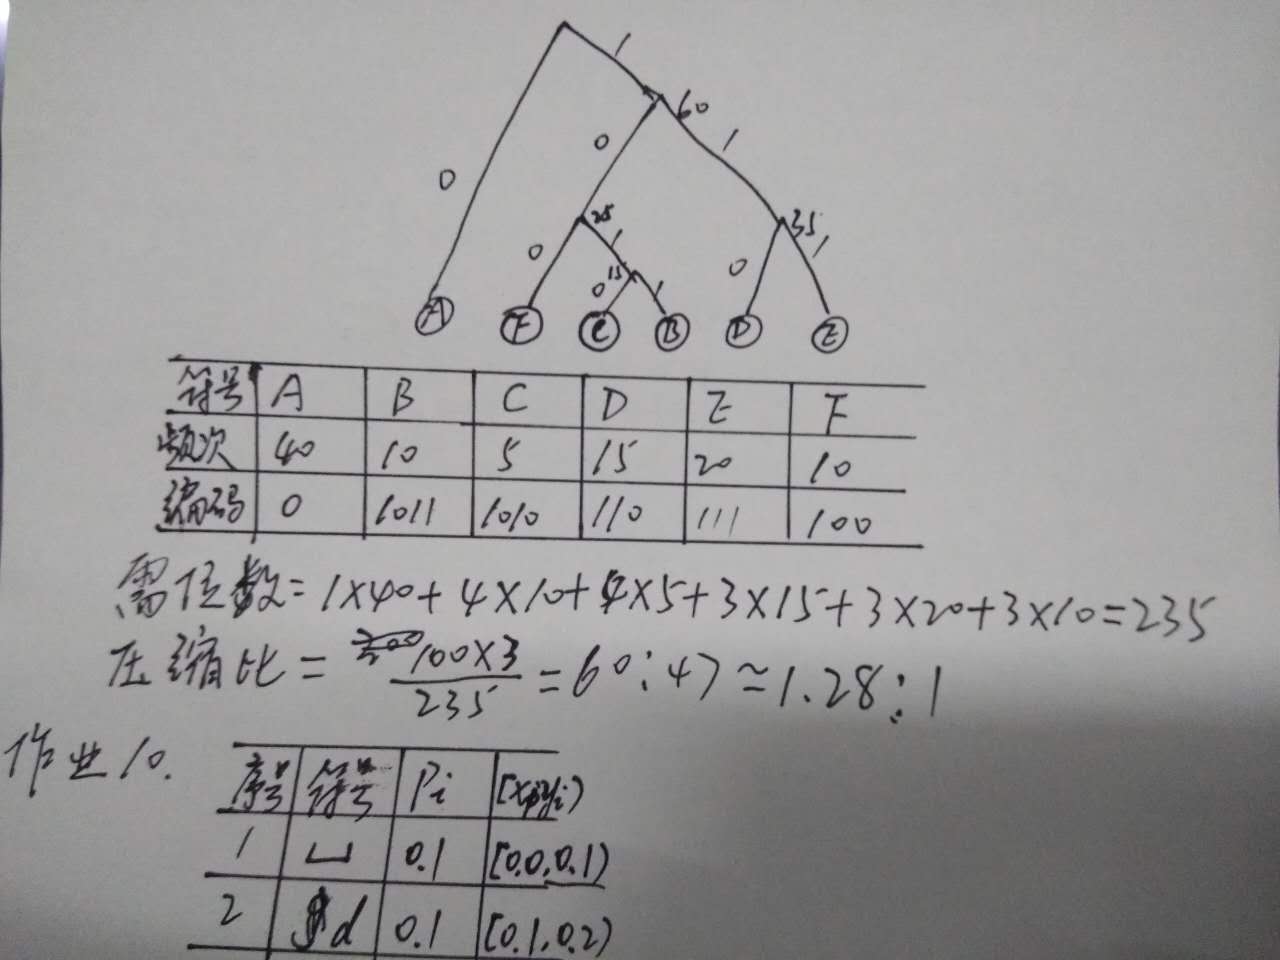 1
60
0
1
0
25
1
35
1
0
15
0
1
0
A F C B D E
符号 A B C D E F
频次 40 10 5 15 20 10
编码 0 1011 1010 110 111 100
需位数=1×40+4×10+4×5+3×15+3×20+3×10=235
压缩比= 100×3/235 =60:47≈1.28:1
作业10.
序号 符号 Pi [xi,yi)
1 ⌴ 0.1 [0.0,0.1)
2 d 0.1 [0.1,0.2)